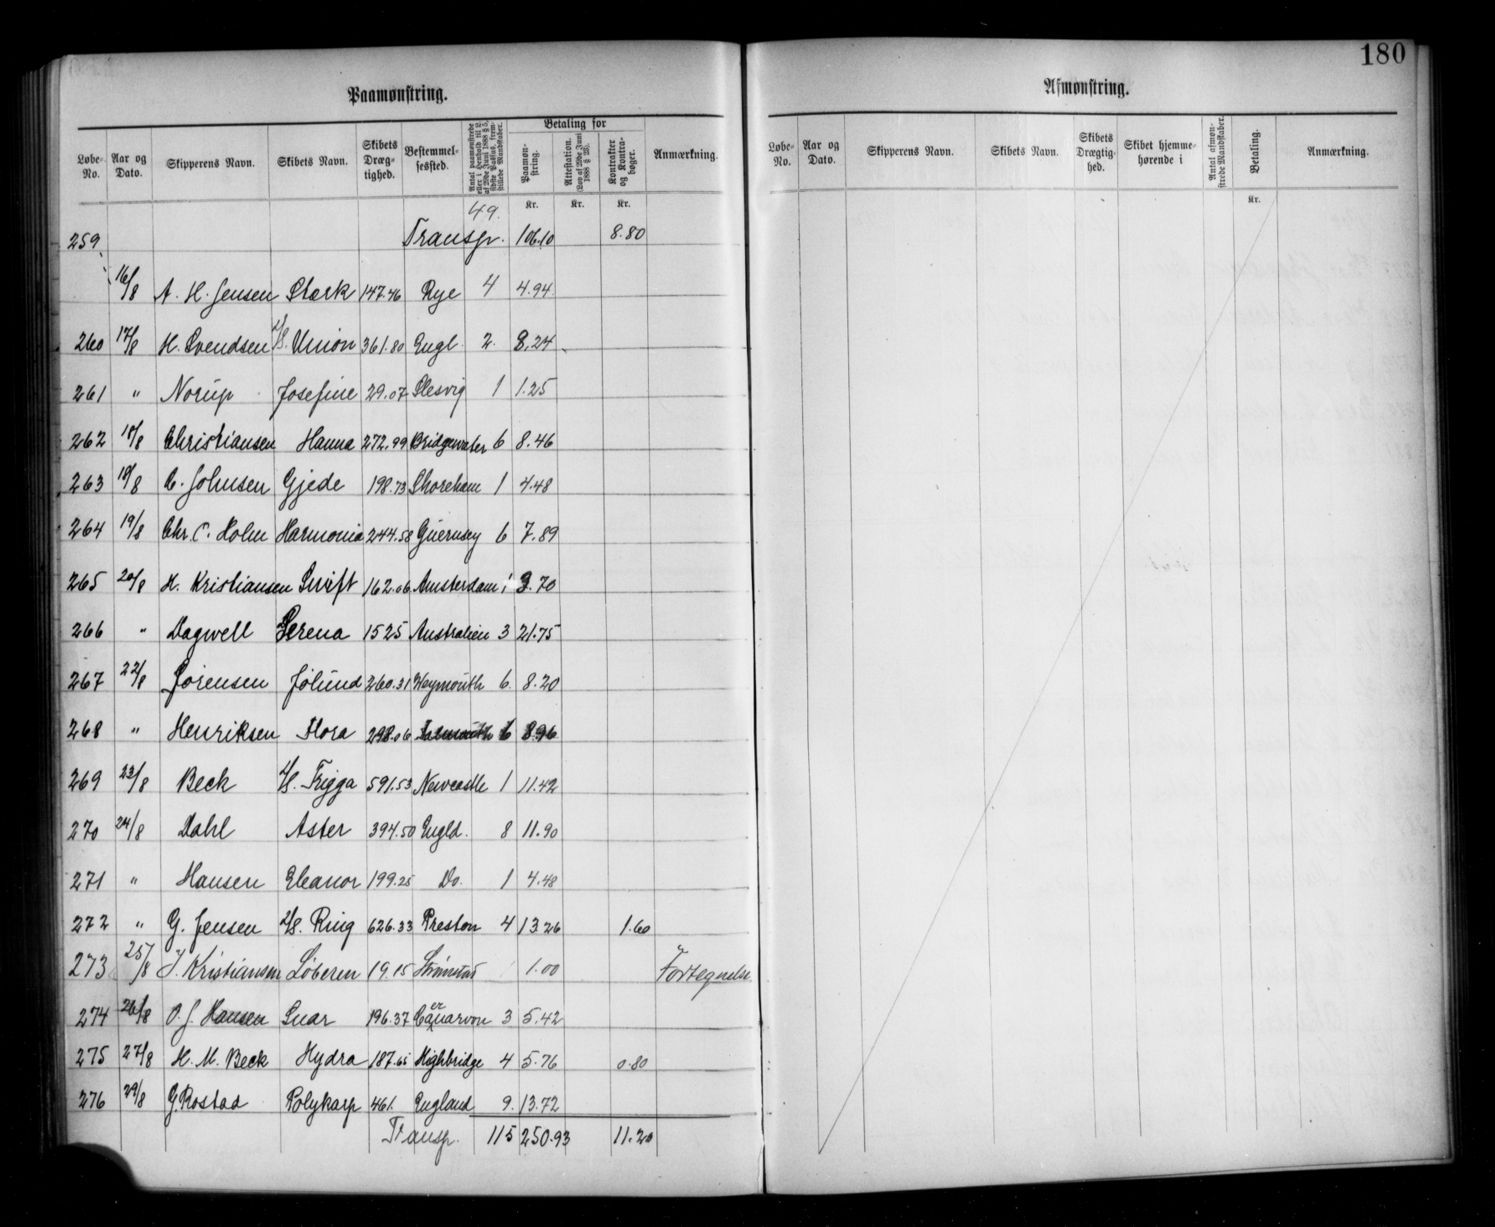 180
Paamønstring.
Løbe-No. Aar og Dato. Skipperens Navn. Skibets Navn. Skibets Dræg-tighed. Bestemmel-sessted. Antal paamønstrede eller i Henhold til L. af 20de Juni 1888 § 5, sidste Passus, frem-stillede Mandskaber. Betaling for Paamøn-string. Attestation. (Lov af 20de Juni 1888 § 25). Kontrakter og Kontra-bøger. Anmærkning.
Kr. Kr. Kr.
259 Transp. 49. 106.10 8.80
16/8 A. H. Jensen Stærk 147.46 Rye 4 4.94
260 17/8 H. Svendsen D/S. Union 361.80 Engl. 2. 8.24
261 " Norup Josefine 29.07 Slesvig 1 1.25
262 18/8 Christiansen Hanna 272.99 Bridgewater 6 8.46
263 18/8 C. Johnsen Gjede 198.73 Shoreham 1 4.48
264 19/8 Chr. C. Holm Harmonia 244.58 Guernsey 6 7.89
265 20/8 H. Kristiansen Swift 162.06 Amsterdam 1 3.70
266 " Dagwell Serena 1525 Australien 3 21.75
267 22/8 Sørensen Jølund 260.31 Weymouth 6. 8.20
268 " Henriksen Flora 298.06 8.96
269 23/8 Beck D/S. Frigga 591.53 Newcastle 1 11.42
270 24/8 Dahl Aster 394.50 Engld. 8 11.90
271 " Hansen Eleanor 199.25 Do. 1 4.48
272 " G. Jensen D/S. Ring 626.33 Preston 4 13.26 1.60
273 25/8 J. Kristiansen Løberen 19.15 Strømstad 1.00 Fortegnelse
274 26/8 O. J. Hansen Snar 196.37 Caernarvon 3 5.42
275 27/8 H. M. Beck Hydra 187.65 Highbridge 4 5.76 0.80
276 29/8 G. Rostad Polykarp 461. England 9. 13.72
Transp. 115 250.93 11.20
Afmønstring.
Løbe-No. Aar og Dato. Skipperens Navn. Skibets Navn. Skibets Drægtig-hed. Skibet hjemme-hørende i Antal afmøn-strede Mandskaber. Betaling. Anmærkning.
Kr.